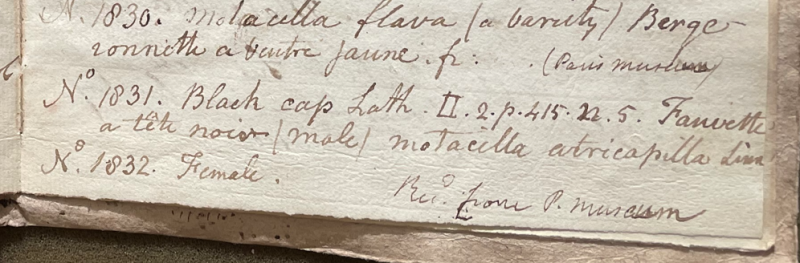 N. 1830. Motacilla flava (a variety) Berge-
ronnette a ventre jaune. fr: . (Paris museum)
N.º 1831. Black cap Lath. II. 2. p. 415. n. 5. Fauvette
a tête noire (male) motacilla atricapilla Linn
N.º 1832. Female.
Rec.d from P. museum